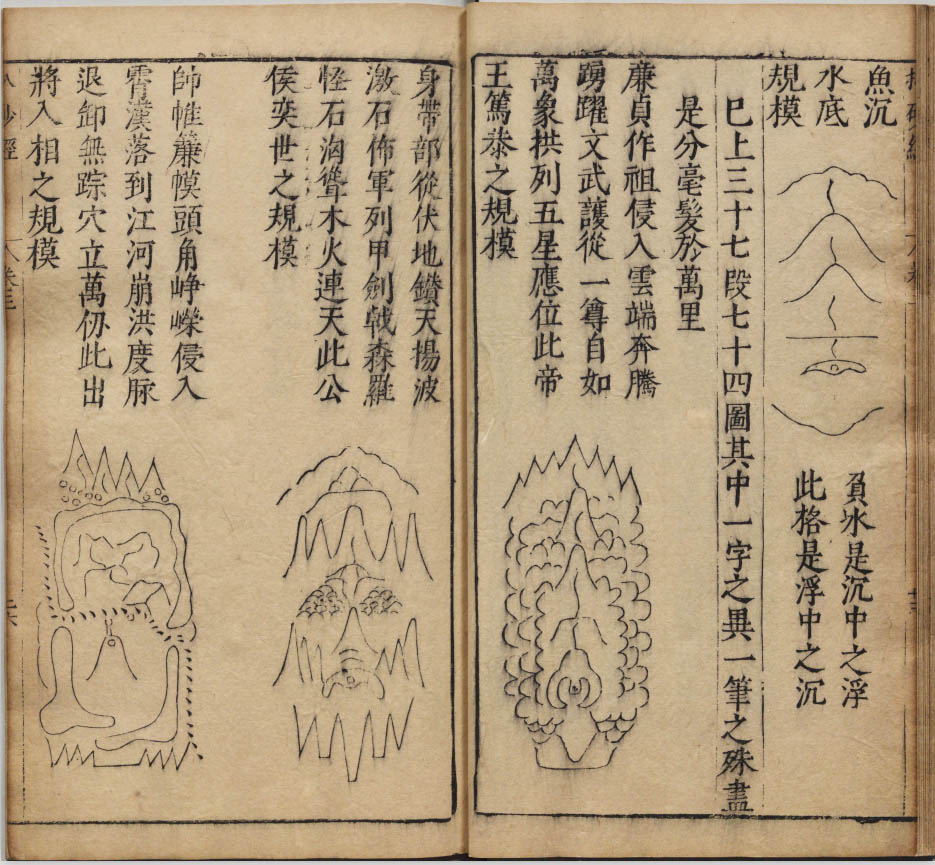 魚沉
水底
規模
負水是沉中之浮
此格是浮中之沉
巳上三十七段七十四圖其中一字之異一筆之殊盡
是分毫髮於萬里
廉貞作祖侵入雲端奔騰
踴躍文武護從一尊自如
萬象拱列五星應位此帝
王篤恭之規模
身帶部從伏地鑚天揚波
激石佈軍列甲劍戟森羅
怪石洶聳木火連天此公
侯奕世之規模
帥帷簾幙頭角崢嶸侵入
霄漢落到江河崩洪度脉
退卸無踪穴立萬仞此出
將入相之規模
卷三